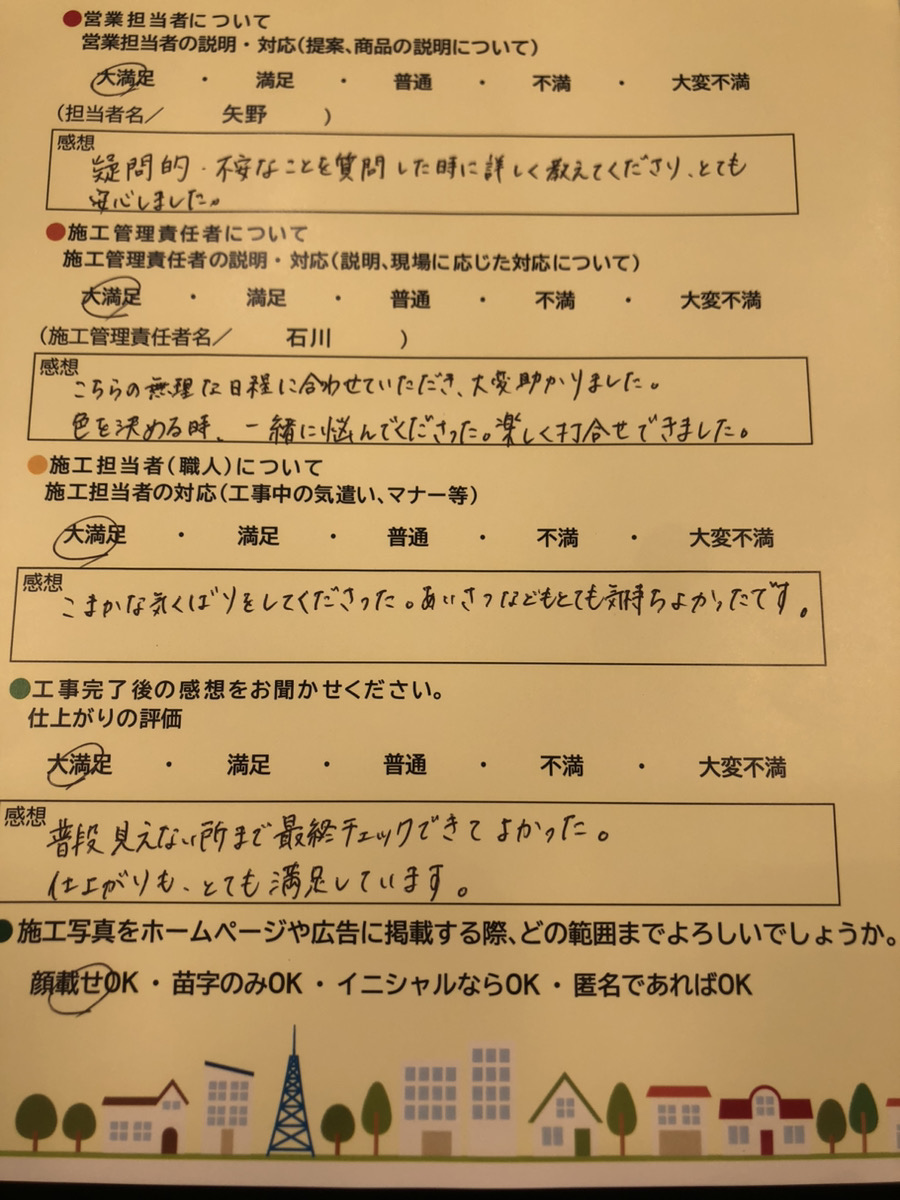 ●営業担当者について
営業担当者の説明・対応(提案、商品の説明について)
大満足 ・ 満足 ・ 普通 ・ 不満 ・ 大変不満
(担当者名/ 矢野 )
感想
疑問的・不安なことを質問した時に詳しく教えてくださり、とても
安心しました。
●施工管理責任者について
施工管理責任者の説明・対応(説明、現場に応じた対応について)
大満足 ・ 満足 ・ 普通 ・ 不満 ・ 大変不満
(施工管理責任者名/ 石川 )
感想
こちらの無理な日程に合わせていただき、大変助かりました。
色を決める時、一緒に悩んでくださった。楽しく打合せできました。
●施工担当者(職人)について
施工担当者の対応(工事中の気遣い、マナー等)
大満足 ・ 満足 ・ 普通 ・ 不満 ・ 大変不満
感想
こまかな気くばりをしてくださった。あいさつなどもとても気持ちよかったです。
●工事完了後の感想をお聞かせください。
仕上がりの評価
大満足 ・ 満足 ・ 普通 ・ 不満 ・ 大変不満
感想
普段見えない所まで最終チェックできてよかった。
仕上がりも、とても満足しています。
●施工写真をホームページや広告に掲載する際、どの範囲までよろしいでしょうか。
顔載せOK ・ 苗字のみOK ・ イニシャルならOK ・ 匿名であればOK